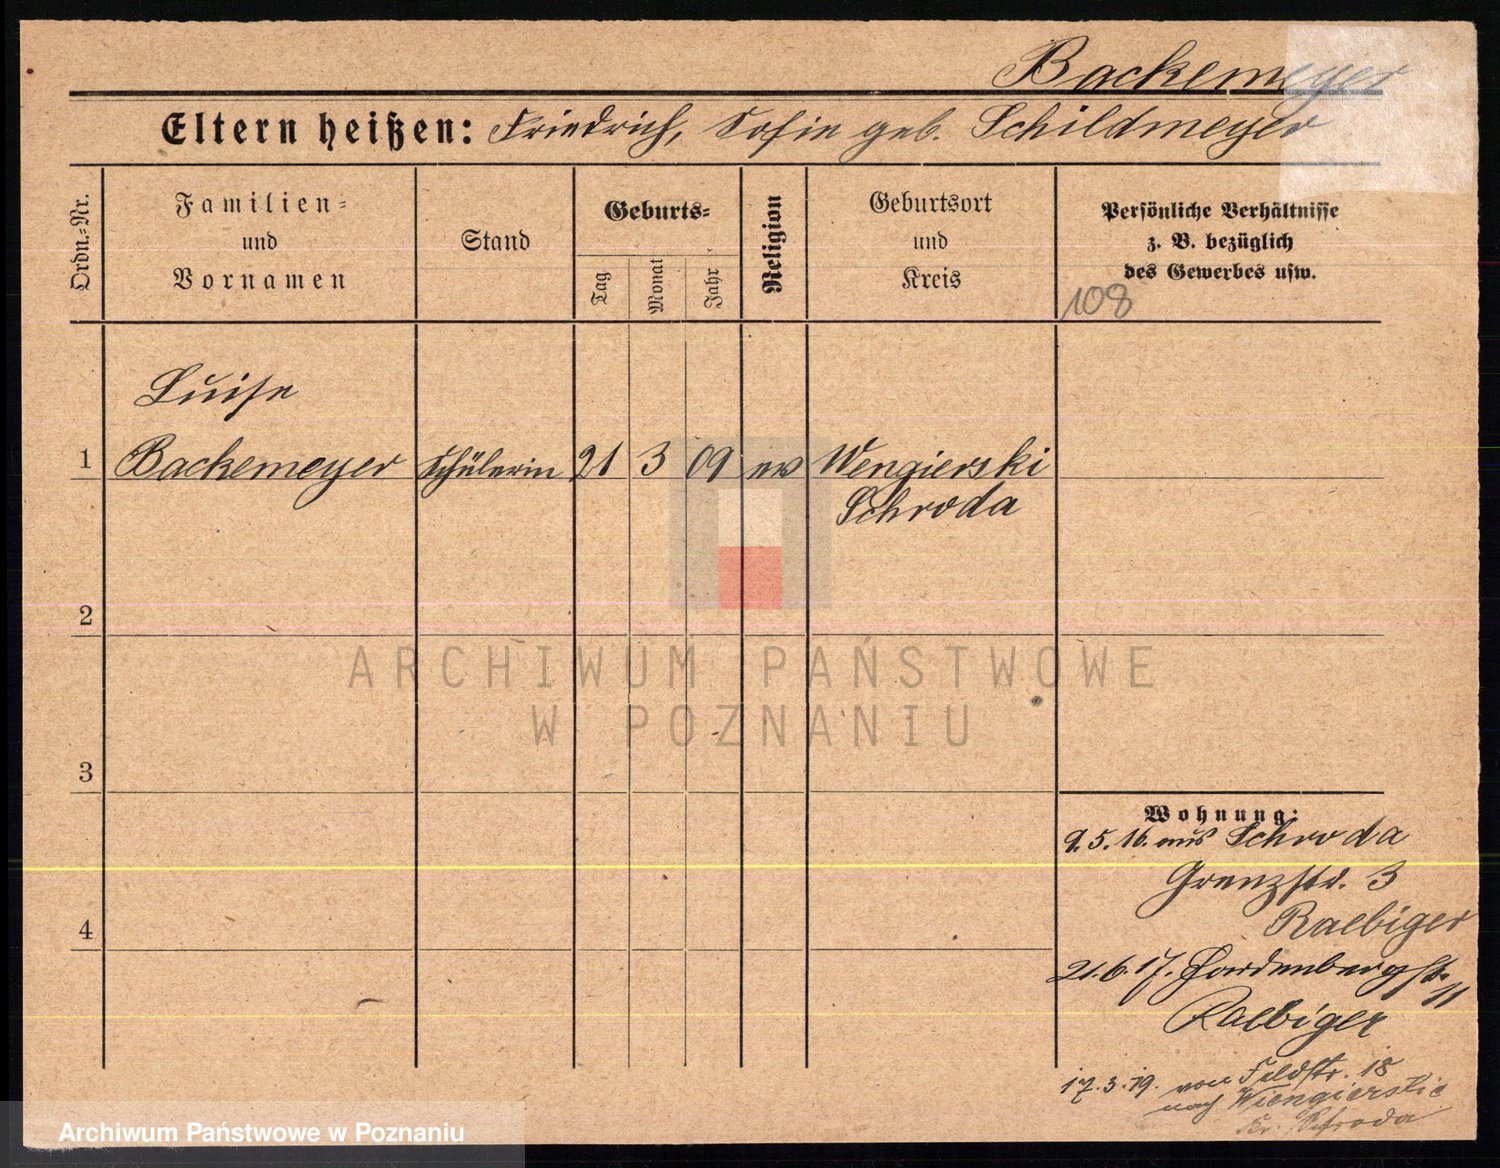 Backemeyer
Eltern heißen: Friedrich, Sofie geb. Schildmeyer
Ordn.-Nr.
Familien-
und
Vornamen
Stand
Geburts-
Tag
Monat
Jahr
Religion
Geburtsort
und
Kreis
Persönliche Verhältnisse
z. B. bezüglich
des Gewerbes usw.
108
Luise
1 Backemeyer Schülerin 21 3 09 ev Wengierski
Schroda
2
ARCHIWUM PAŃSTWOWE
W POZNANIU
3
Wohnung:
9.5.16. aus Schroda
Grenzstr. 3
Raebiger
4
21.6.17. Hardenbergstr. 11
Raebiger
17.3.19. von Feldstr. 18
nach Wiengierski
Kr. Schroda
Archiwum Państwowe w Poznaniu